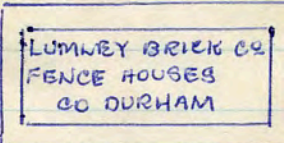 LUMLEY BRICK Co
FENCE HOUSES
CO DURHAM